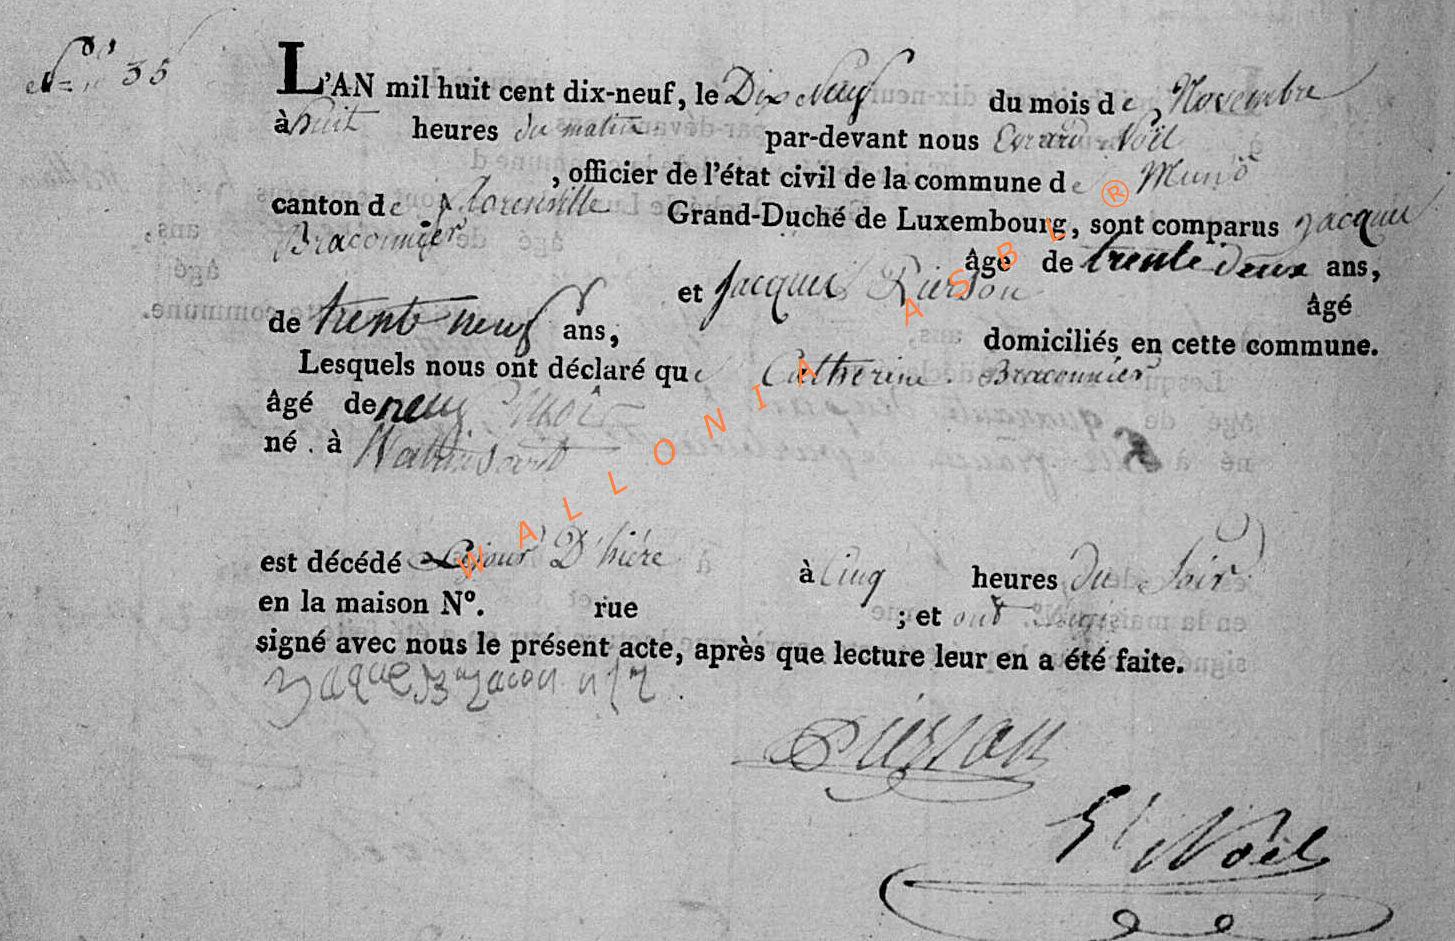 N° 35
L'AN mil huit cent dix-neuf, le Dix Neuf du mois de Novembre
à huit heures du matin par-devant nous Evrard Noël
, officier de l'état civil de la commune de Muno
canton de Florenville Grand-Duché de Luxembourg, sont comparus Jacques
Braconnier âgé de trente deux ans,
et Jacques Pierson âgé
de trente neuf ans, domiciliés en cette commune.
Lesquels nous ont déclaré que Catherine Braconnier
âgé de neuf mois
né à Watrinsart
est décédé Le jour D'hiére à Cinq heures du Soir
en la maison N°. rue ; et ont Signé
signé avec nous le présent acte, après que lecture leur en a été faite.
Pierson
E Noël
WALLONIA ASBL ®